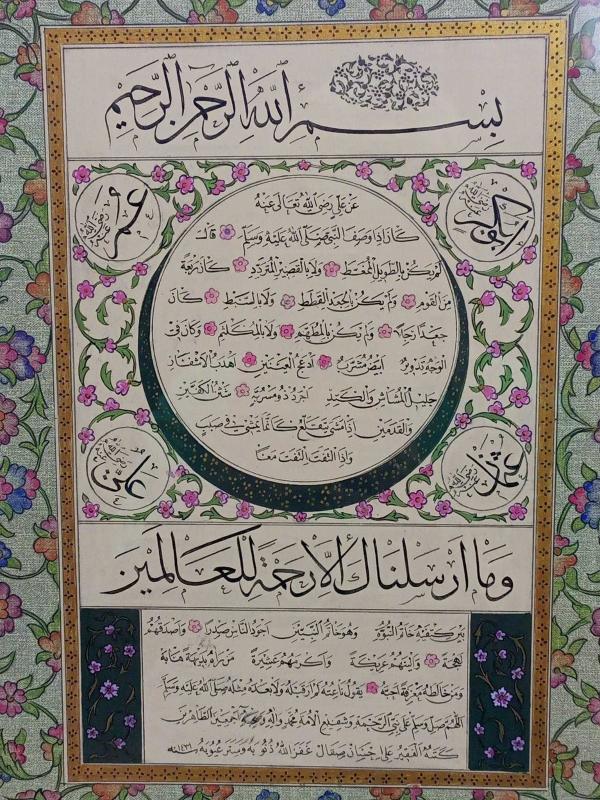 بسم الله الرحمن الرحيم
ابوبكر رضي الله عنه
عمر رضي الله عنه
عن علي رضي الله تعالى عنه
كان اذا وصف النبي صلى الله عليه وسلم قال
لم يكن بالطويل الممغط ولا بالقصير المتردد كان ربعة
من القوم ولم يكن بالجعد القطط ولا بالسبط كان
جعدا رجلا ولم يكن بالمطهم ولا بالمكلثم وكان في
الوجه تدوير ابيض مشرب ادعج العينين اهدب الاشفار
جليل المشاش والكتد اجرد ذو مسربة شثن الكفين
والقدمين اذا مشى تقلع كانما يمشي في صبب
واذا التفت التفت معا
عثمان رضي الله عنه
علي رضي الله عنه
وما ارسلناك الا رحمة للعالمين
بين كتفيه خاتم النبوة وهو خاتم النبيين اجود الناس صدرا واصدقهم
لهجة والينهم عريكة واكرمهم عشيرة من رآه بديهة هابه
ومن خالطه معرفة احبه يقول ناعته لم ار قبله ولا بعده مثله صلى الله عليه وسلم
اللهم صل وسلم على نبي الرحمة وشفيع الامة محمد وآله وصحبه اجمعين الطاهرين
كتبه الفقير علي غفر الله ذنوبه وستر عيوبه سنة ١٤٣١